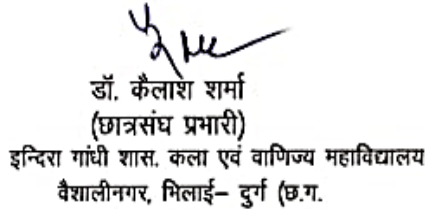 डॉ. कैलाश शर्मा
(छात्रसंघ प्रभारी)
इन्दिरा गांधी शास. कला एवं वाणिज्य महाविद्यालय
वैशालीनगर, भिलाई– दुर्ग (छ.ग.